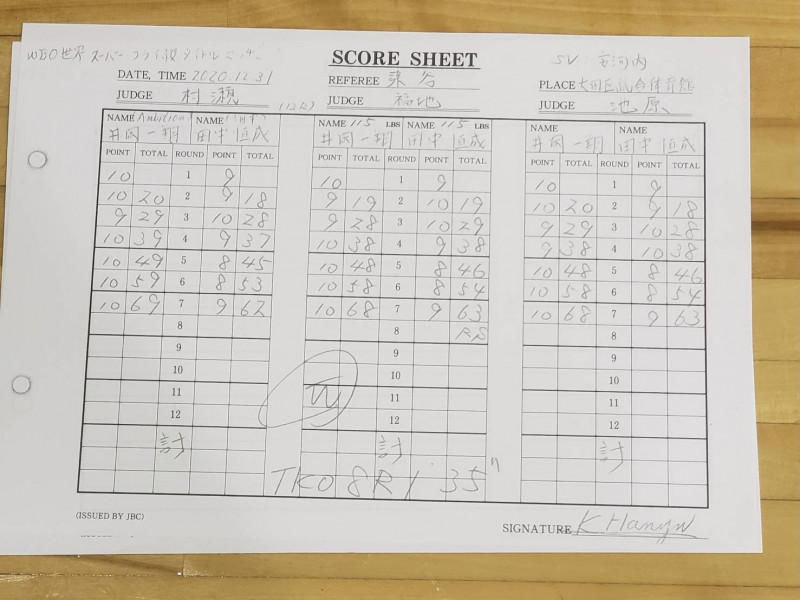 WBO世界スーパーフライ級タイトルマッチ
SCORE SHEET
SV 安河内
DATE, TIME 2020.12.31
REFEREE 染谷
PLACE 大田区総合体育館
JUDGE 村瀬
(12R)
JUDGE 福地
JUDGE 池原
NAME Ambition NAME
NAME 115 LBS NAME 115 LBS
NAME NAME
井岡一翔 田中恒成
井岡一翔 田中恒成
井岡一翔 田中恒成
POINT TOTAL ROUND POINT TOTAL
POINT TOTAL ROUND POINT TOTAL
POINT TOTAL ROUND POINT TOTAL
10 1 9
10 1 9
10 1 9
10 20 2 9 18
9 19 2 10 19
10 20 2 9 18
9 29 3 10 28
9 28 3 10 29
9 29 3 10 28
10 39 4 9 37
10 38 4 9 38
9 38 4 10 38
10 49 5 8 45
10 48 5 8 46
10 48 5 8 46
10 59 6 8 53
10 58 6 8 54
10 58 6 8 54
10 69 7 9 62
10 68 7 9 63
10 68 7 9 63
8
8 RS
8
9
9
9
10
10
10
11
W 11
11
12
12
12
計
計
計
TKO 8R 1'35"
(ISSUED BY JBC)
SIGNATURE